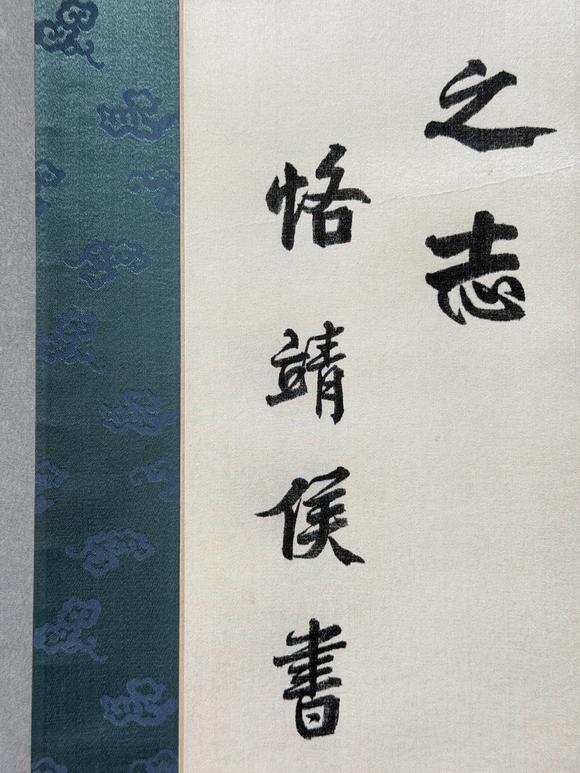 之志
恪靖侯書